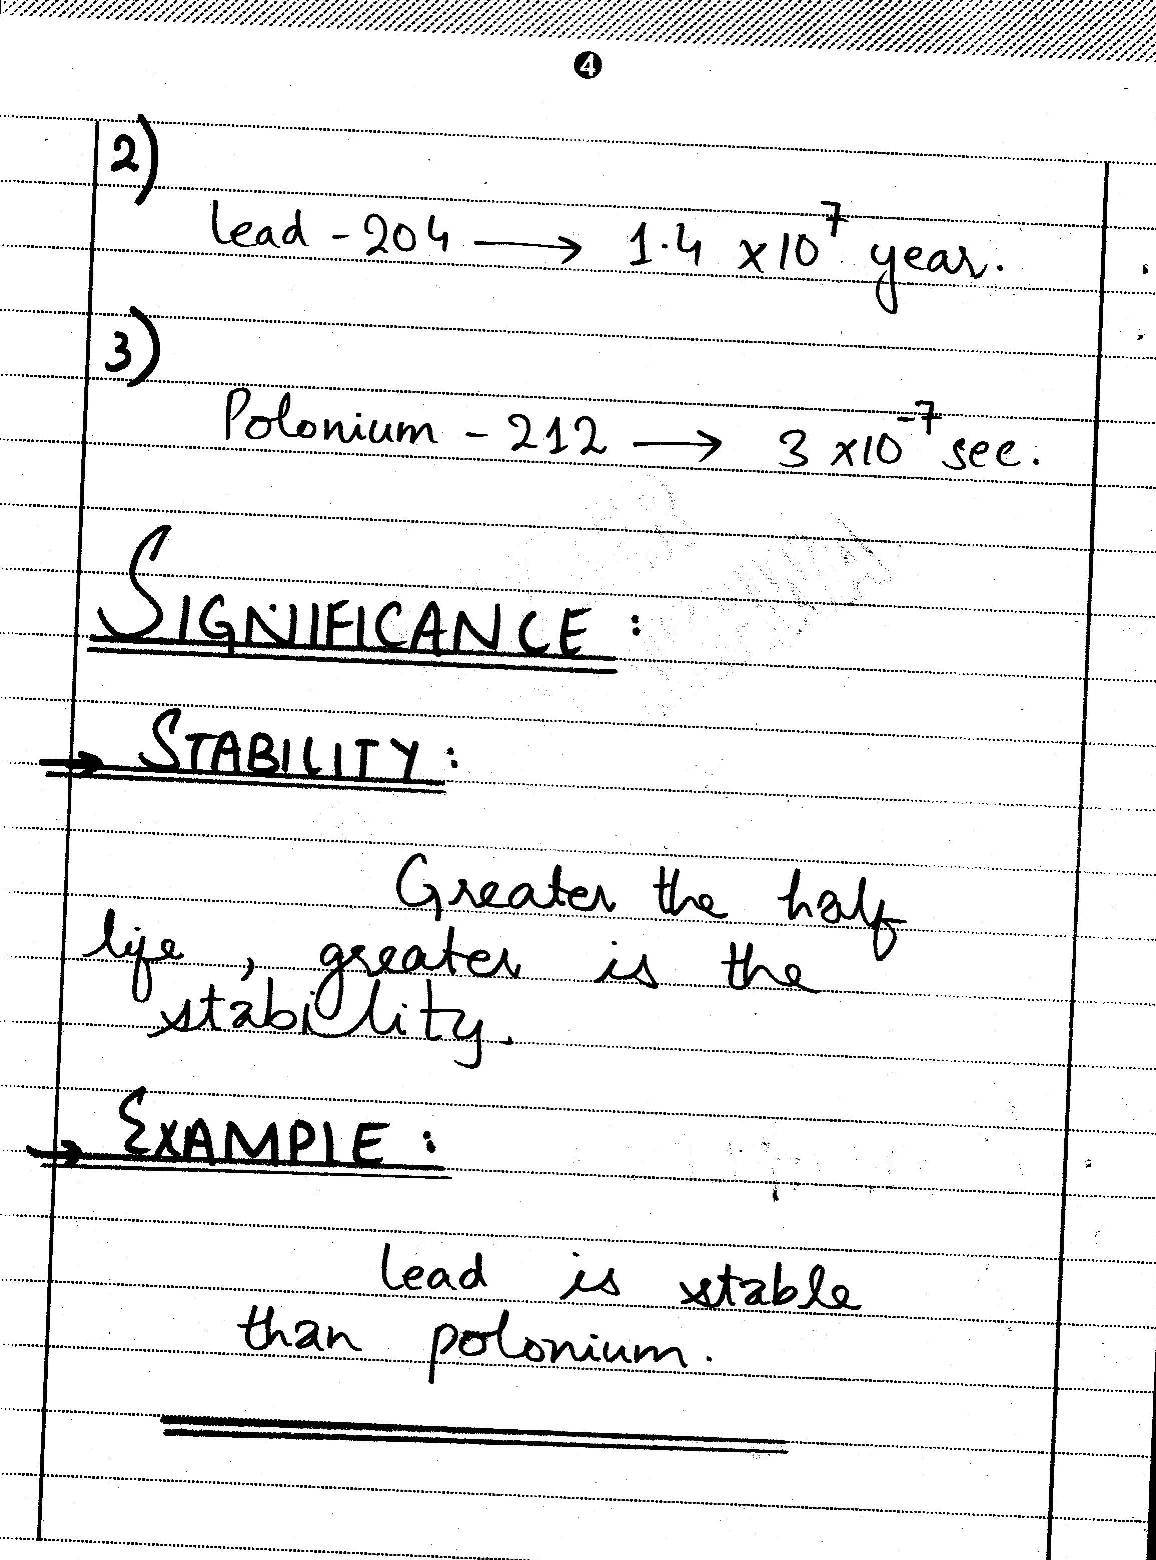 4
2)
Lead - 204 → 1.4 × 10⁷ year.
3)
Polonium - 212 → 3 × 10⁻⁷ sec.
SIGNIFICANCE :
→ STABILITY :
Greater the half
life, greater is the
stability.
→ EXAMPLE :
Lead is stable
than polonium.